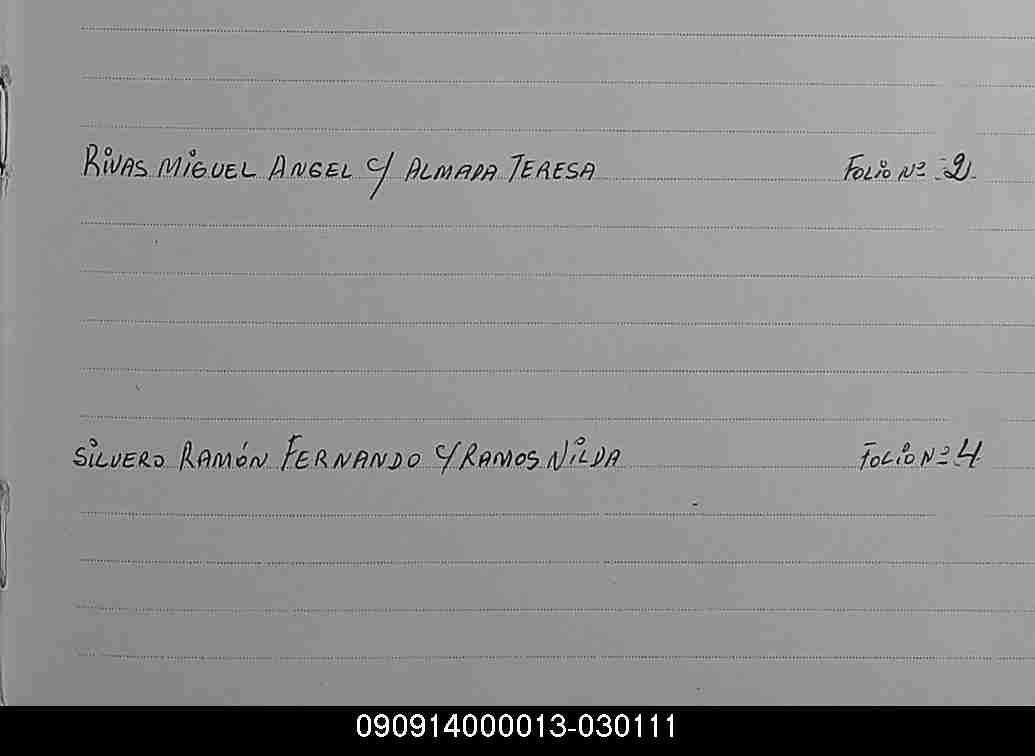 RIVAS MIGUEL ANGEL C/ ALMADA TERESA FOLIO Nº -2-
SILVERO RAMÓN FERNANDO C/ RAMOS NILDA FOLIO Nº 4
090914000013-030111